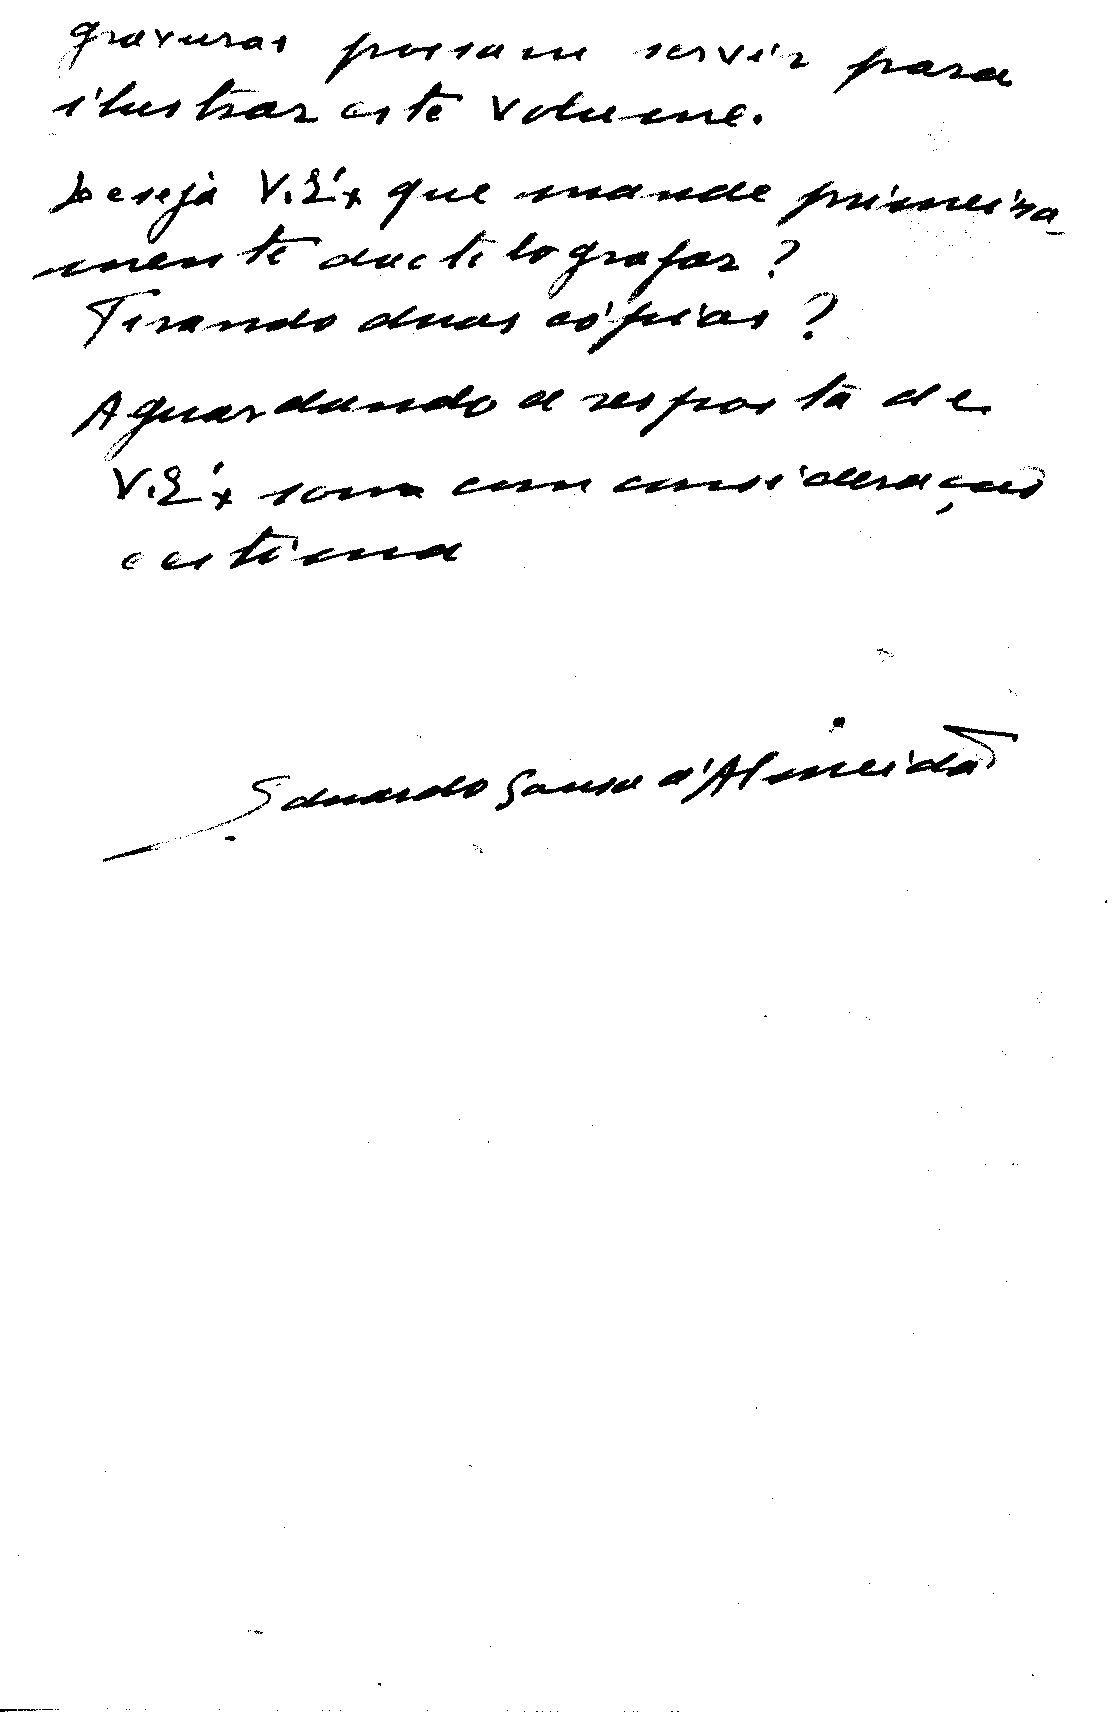 gravuras possam servir para
ilustrar este volume.
Deseja V.Éx que mande primeira-
mente dactilografar?
Tirando duas cópias?
Aguardando a resposta de
V.Éx sou com consideração
e estima
Eduardo Sousa d'Almeida